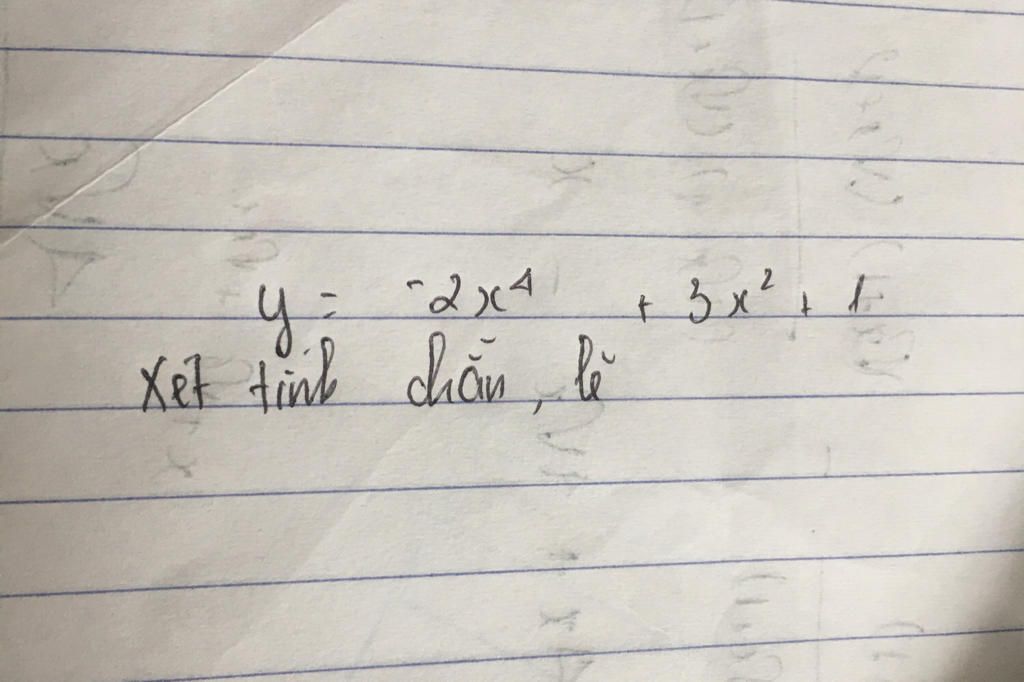 y = -2x⁴ + 3x² + 1
Xét tính chẵn, lẻ